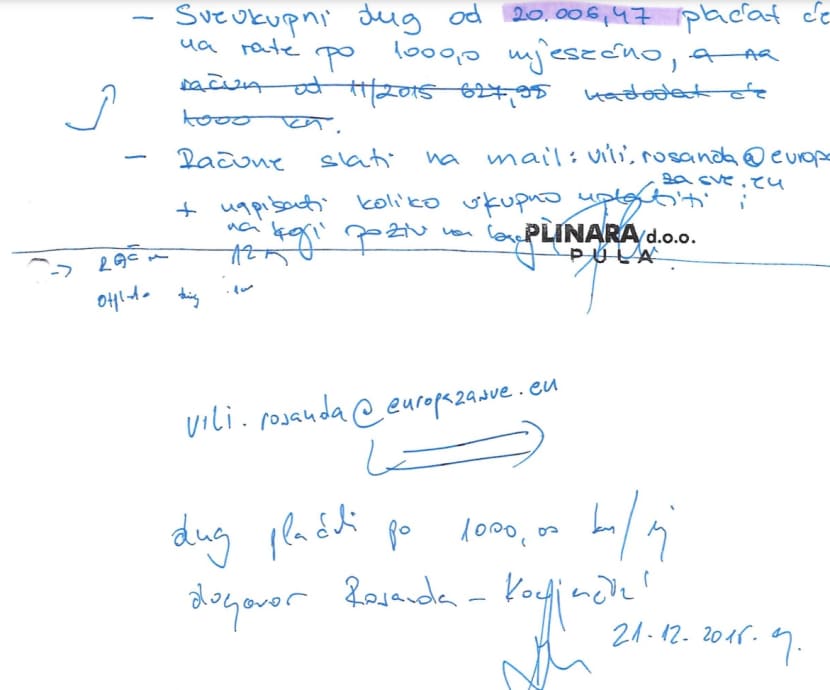 - Sveukupni dug od 20.006,47 plaćat će
na rate po 1000,0 mjesečno, a na
račun od 11/2015 627,95 nadodat će
1000 kn.
- Račune slati na mail: vili.rosanda@europa
za sve.eu
+ napisati koliko ukupno uplatiti i
na koji poziv na
PLINARA d.o.o.
PULA
vili.rosanda@europazasve.eu
dug plaćati po 1000,00 kn/mj
dogovor Rosanda -
21.12.2015.g.